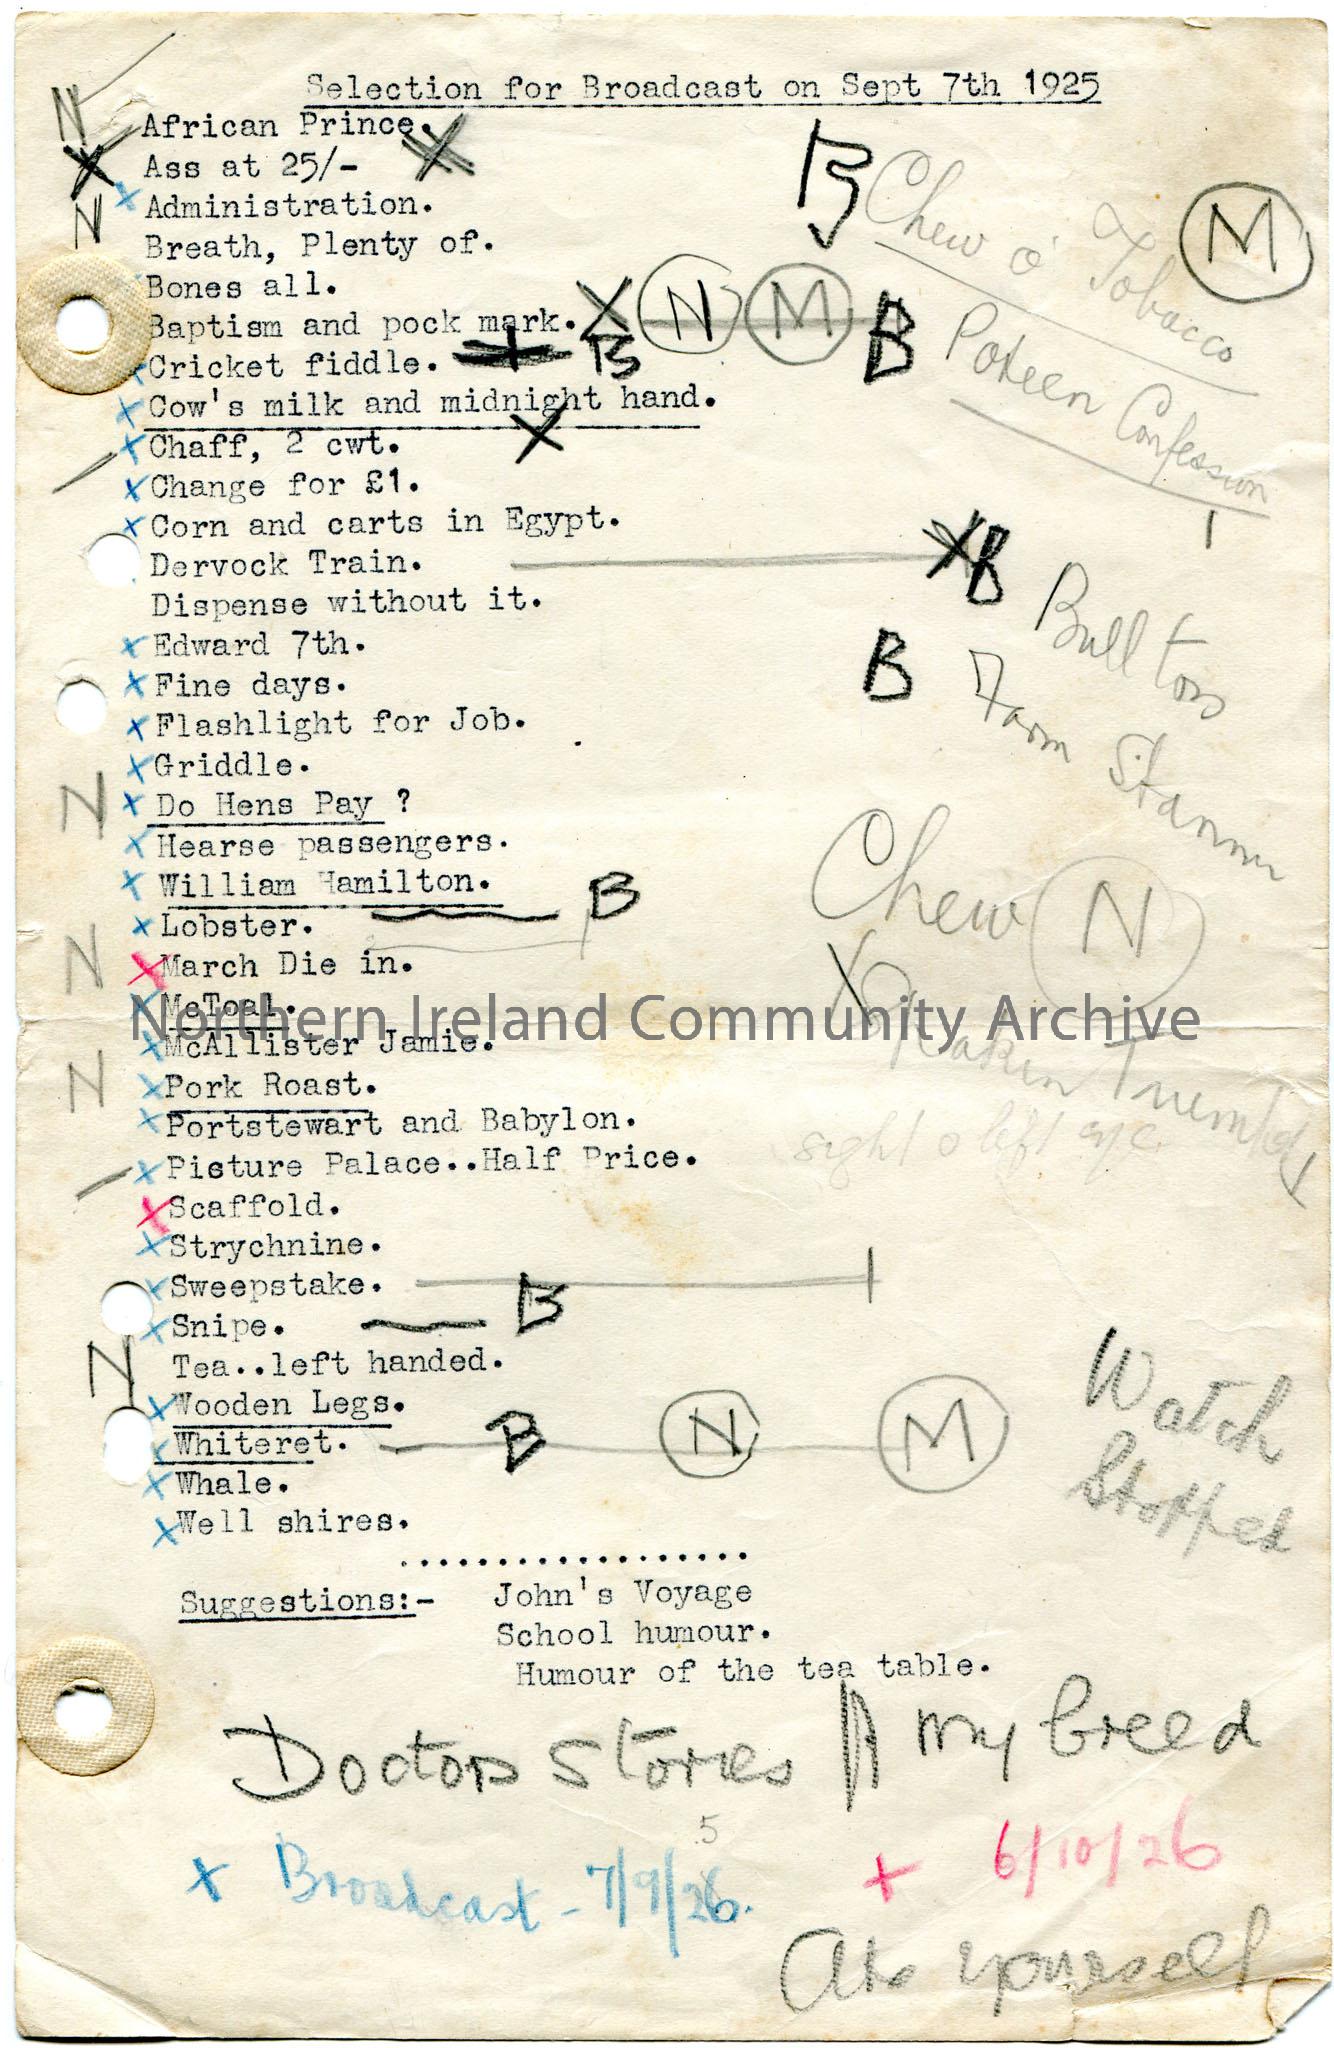 Selection for Broadcast on Sept 7th 1925
N African Prince.
X Ass at 25/- X
X Administration.
N Breath, Plenty of.
Bones all.
Baptism and pock mark. X N M B
Cricket fiddle. B
X Cow's milk and midnight hand.
X Chaff, 2 cwt. X
X Change for £1.
X Corn and carts in Egypt.
Dervock Train. X B
Dispense without it.
X Edward 7th.
X Fine days.
X Flashlight for Job.
X Griddle.
N X Do Hens Pay ?
X Hearse passengers.
X William Hamilton. B
X Lobster.
N X March Die in.
X McToal.
X McAllister Jamie.
N X Pork Roast.
X Portstewart and Babylon.
X Pisture Palace..Half Price.
X Scaffold.
X Strychnine.
X Sweepstake.
X Snipe. B
N Tea..left handed.
X Wooden Legs.
X Whiteret. B N M
X Whale.
X Well shires.
...................
Suggestions:- John's Voyage
School humour.
Humour of the tea table.
B Chew o' Tobacco M
Poteen Confession
Bull Toss
B Farm
Chew N
X
sight o left eye
Watch
Stopped
Doctors Stories
my breed
5
X Broadcast - 7/9/26.
X 6/10/26
yourself
Northern Ireland Community Archive